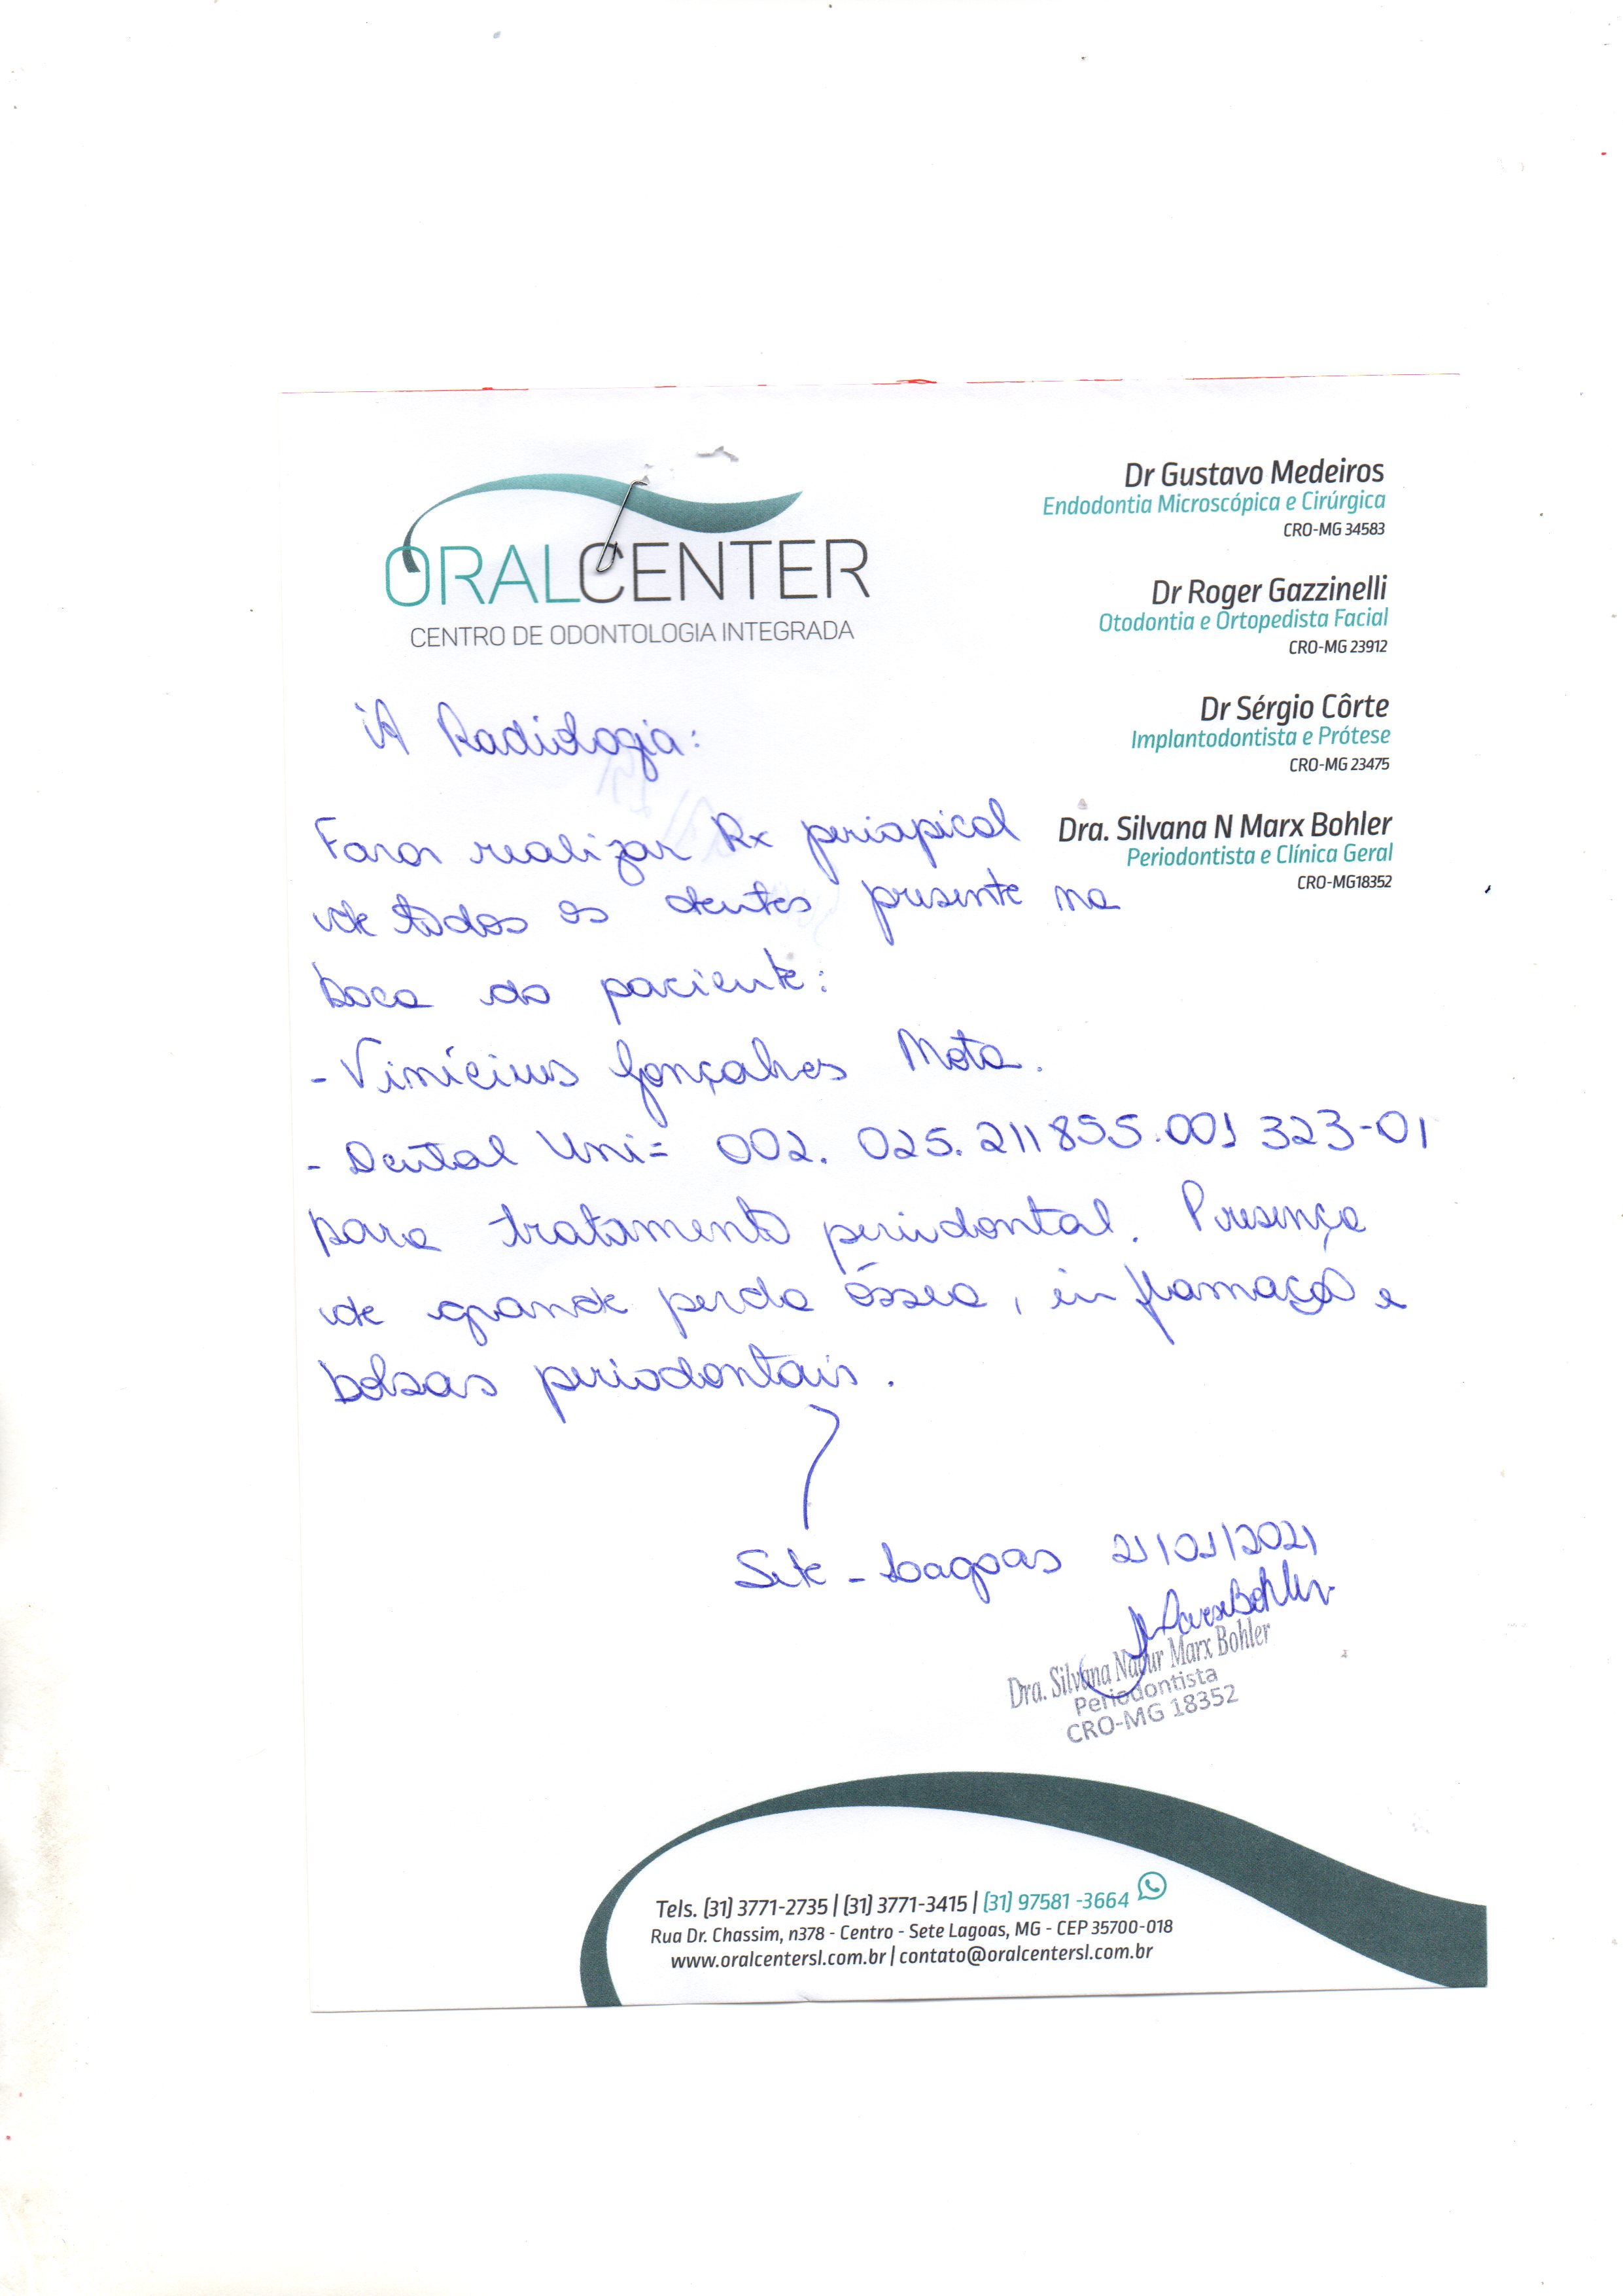 ORALCENTER
CENTRO DE ODONTOLOGIA INTEGRADA
Dr Gustavo Medeiros
Endodontia Microscópica e Cirúrgica
CRO-MG 34583
Dr Roger Gazzinelli
Otodontia e Ortopedista Facial
CRO-MG 23912
Dr Sérgio Côrte
Implantodontista e Prótese
CRO-MG 23475
Dra. Silvana N Marx Bohler
Periodontista e Clínica Geral
CRO-MG18352
À Radiologia:
Favor realizar Rx periapical
de todos os dentes presente na
boca do paciente:
- Vinícius Gonçalves Mota.
- Dental Uni= 002. 025. 211855.001 323-01
para tratamento periodontal. Presença
de grande perda óssea, inflamação e
bolsas periodontais.
Sete-Lagoas 21/01/2021
Dra. Silvana Nacur Marx Bohler
Periodontista
CRO-MG 18352
Tels. (31) 3771-2735 | (31) 3771-3415 | (31) 97581-3664
Rua Dr. Chassim, n378 - Centro - Sete Lagoas, MG - CEP 35700-018
www.oralcentersl.com.br | contato@oralcentersl.com.br